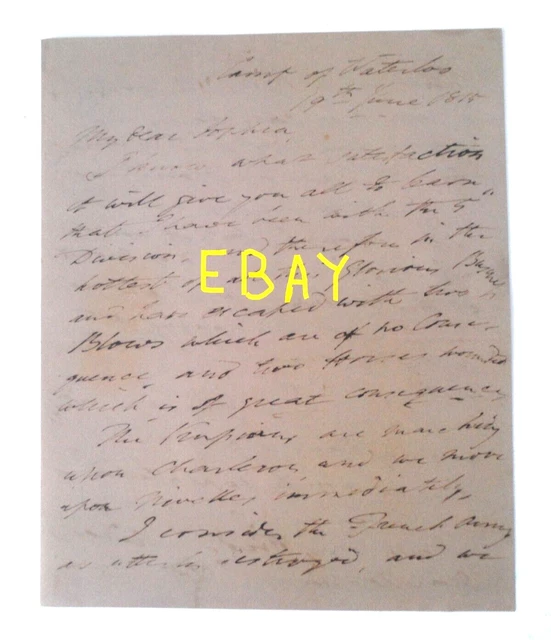 Camp of Waterloo
19th June 1815
My Dear Sophia
I know what satisfaction
it will give you all to learn
that I have been with the 5
Division, and therefore in the
hottest of all this Glorious
EBAY
and have escaped with two
Blows which are of no Conse-
quence, and two Horses wounded
which is of great consequence
The Prussians are marching
upon Charleroi and we move
upon Nivelles immediately,
I consider the French Army
as utterly destroyed, and we